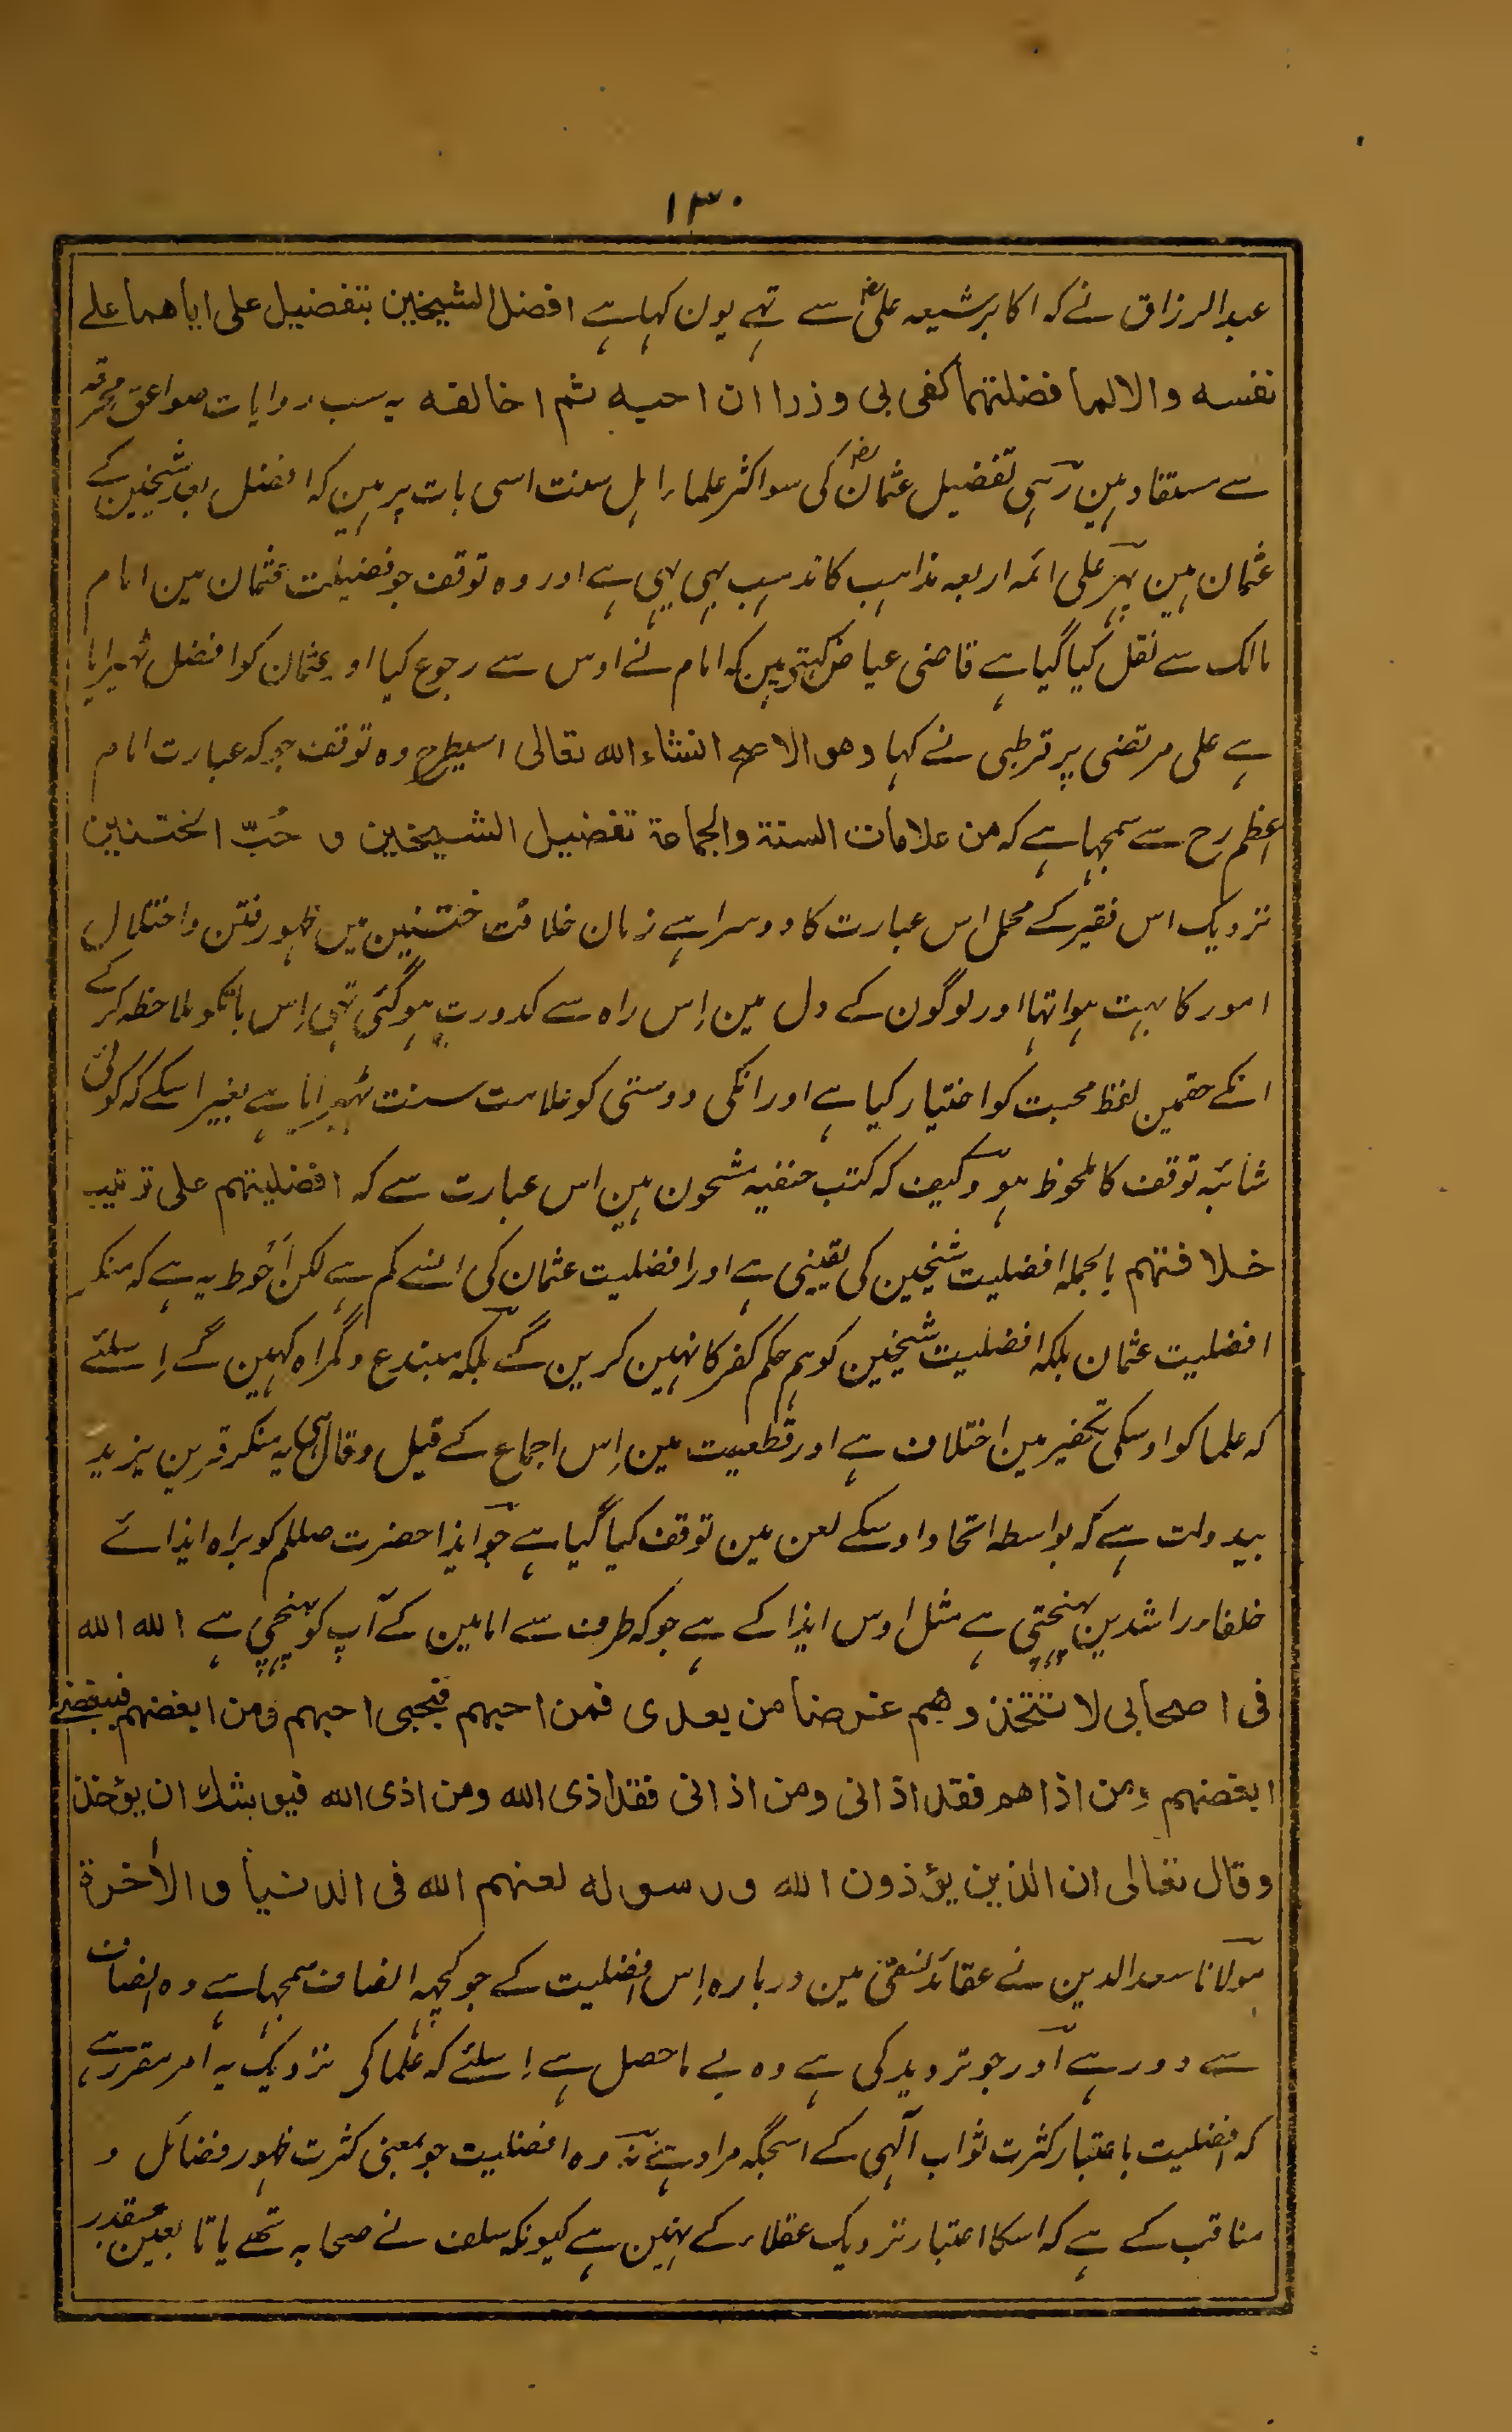 ۱۳۰
عبدالرزاق نے کہ اکابر شیعہ علیؓ سے تہے یون کہا ہے افضل الشیخین بتفضیل علی ایاھما علے
نفسه والا لما فضلتهما کفی بی وزرا ان احبه ثم اخالفه یہ سب روایات صواعق محرقہ
سے مستفاد ہین رہی تفضیل عثمانؓ کی سو اکثر علماء اہل سنت اسی بات پر ہین کہ افضل بعد شیخین کے
عثمان ہین پہر علی ائمہ اربعہ مذاہب کا مذہب بہی یہی ہے اور وہ توقف جو فضیلت عثمان مین امام
مالک سے نقل کیا گیا ہے قاضی عیاض کہتے ہین کہ امام نے اوس سے رجوع کیا اور عثمان کو افضل ٹہیرایا
ہے علی مرتضی پر قرطبی نے کہا وهو الاصح انشاء الله تعالی اسیطرح وہ توقف جو کہ عبارت امام
اعظم رح سے سمجہا ہے کہ من علامات السنة والجماعة تفضیل الشیخین و حُبّ الختنین
نزدیک اس فقیر کے محمل اس عبارت کا دوسرا ہے زمان خلافت ختنین مین ظہور فتن و اختلال
امور کا بہت ہوا تہا اور لوگون کے دل مین اِس راہ سے کدورت ہو گئی تہی اِس بات کو ملاحظہ کر کے
انکے حقمین لفظ محبت کو اختیار کیا ہے اور انکی دوستی کو علامت سنت ٹہیرایا ہے بغیر اسکے کہ کوئی
شائبہ توقف کا ملحوظ ہو و کیف کہ کتب حنفیہ مشحون ہین اس عبارت سے کہ افضلیتهم علی ترتیب
خلافتهم بالجملہ افضلیت شیخین کی یقینی ہے اور افضلیت عثمان کی انسے کم ہے لکن اَحْوط یہ ہے کہ منکر
افضلیت عثمان بلکہ افضلیت شیخین کو ہم حکم کفر کا نہین کرین گے بلکہ مبتدع و گمراہ کہین گے اِسلئے
کہ علما کو اوسکی تکفیر مین اختلاف ہے اور قطعیت مین اِس اجماع کے قیل و قال ہی یہ منکر قرین یزید
بیدولت ہے کہ بواسطہ اوسکے لعن مین توقف کیا گیا ہے جو ایذا حضرت صللم کو براہ ایذائے
خلفاء راشدین پہنچتی ہے مثل اوس ایذا کے ہے جو کہ طرف سے امامین کے آپ کو پہنچی ہے الله الله
فی اصحابی لا تتخذوهم غرضا من بعدی فمن احبهم فبحبی احبهم ومن ابغضهم فببغضی
ابغضهم ومن اذاهم فقد اذانی ومن اذانی فقد اذی الله ومن اذی الله فیوشك ان یؤخذ
وقال تعالی ان الذین یؤذون الله ورسوله لعنهم الله فی الدنیا والأخرة
مولانا سعدالدین نے عقائد نسفی مین دربارہ اِس افضلیت کے جو کچہہ انصاف سمجہا ہے وہ انصاف
سے دور ہے اور جو تردید کی ہے وہ بے ماحصل ہے اِسلئے کہ علما کی نزدیک یہ امر مقرر ہے
کہ افضلیت باعتبار کثرت ثواب الٰہی کے اسجگہ مراد ہے نہ وہ افضلیت جو بمعنی کثرت ظہور فضائل و
مناقب کے ہے کہ اسکا اعتبار نزدیک عقلاء کے نہین ہے کیونکہ سلف نے صحابہ تھے یا تابعین جسقدر